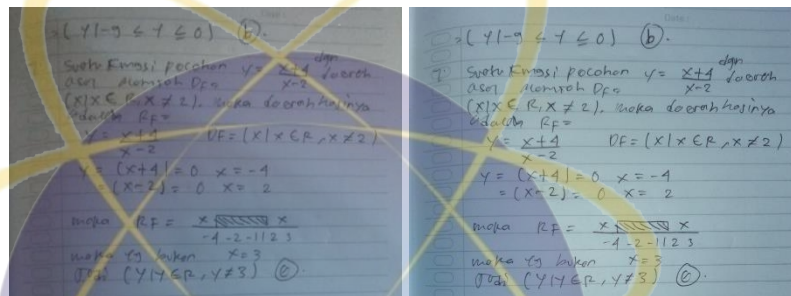 = ( Y | -9 ≤ Y ≤ 0 ) (b).
7. Suatu Fungsi pecahan y = x+4 / x-2 dgn daerah
asal Domain DF =
(x | x ∈ R, x ≠ 2). maka daerah hasilnya
adalah RF =
y = x+4 / x-2 DF = (x | x ∈ R, x ≠ 2)
y = (x+4) = 0 x = -4
= (x-2) = 0 x = 2
maka RF = x x
-4 -2 -1 1 2 3
maka yg bukan x = 3
Jadi (Y | Y ∈ R, Y ≠ 3) (c).
= ( Y | -9 ≤ Y ≤ 0 ) (b).
7. Suatu Fungsi pecahan y = x+4 / x-2 dgn daerah
asal Domain DF =
(x | x ∈ R, x ≠ 2). maka daerah hasilnya
adalah RF =
y = x+4 / x-2 DF = (x | x ∈ R, x ≠ 2)
y = (x+4) = 0 x = -4
= (x-2) = 0 x = 2
maka RF = x x
-4 -2 -1 1 2 3
maka yg bukan x = 3
Jadi (Y | Y ∈ R, Y ≠ 3) (c).